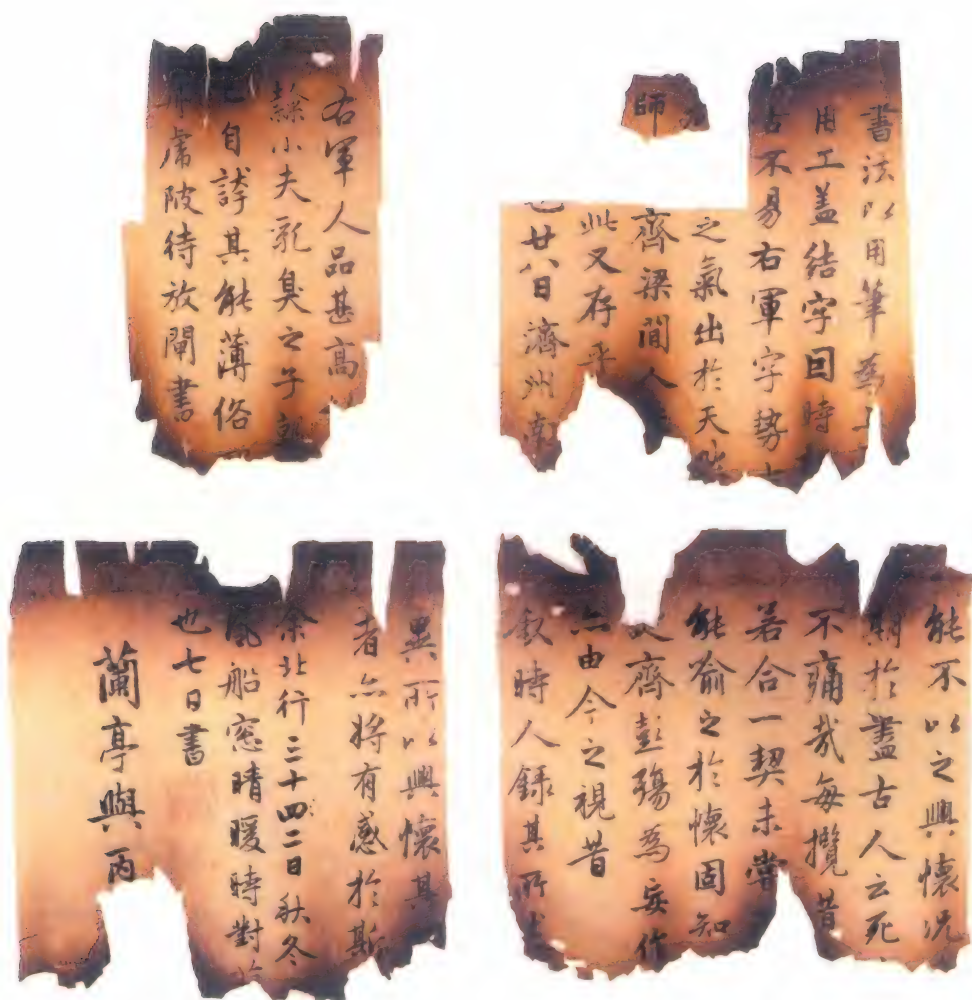 書法以用筆為上
用工盖結字因時
古不易右軍字勢古
之氣出於天然
師 齊梁間人
此又存乎
也廿八日濟州南
右軍人品甚高
隸小夫乳臭之子朝
自誇其能薄俗
虜陂待放閘書
能不以之興懷况
期於盡古人云死
不痛哉每攬昔
若合一契未嘗
能喻之於懷固知
齊彭殤為妄作
亦由今之視昔
叙時人録其所述
異所以興懷其
者亦将有感於斯
余北行三十四二日秋冬
風船窓晴暖時對
也七日書
蘭亭與丙